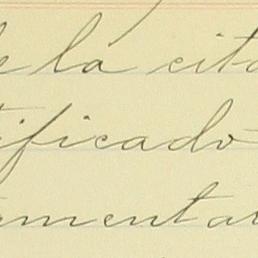 de la cita
tificado
amenta